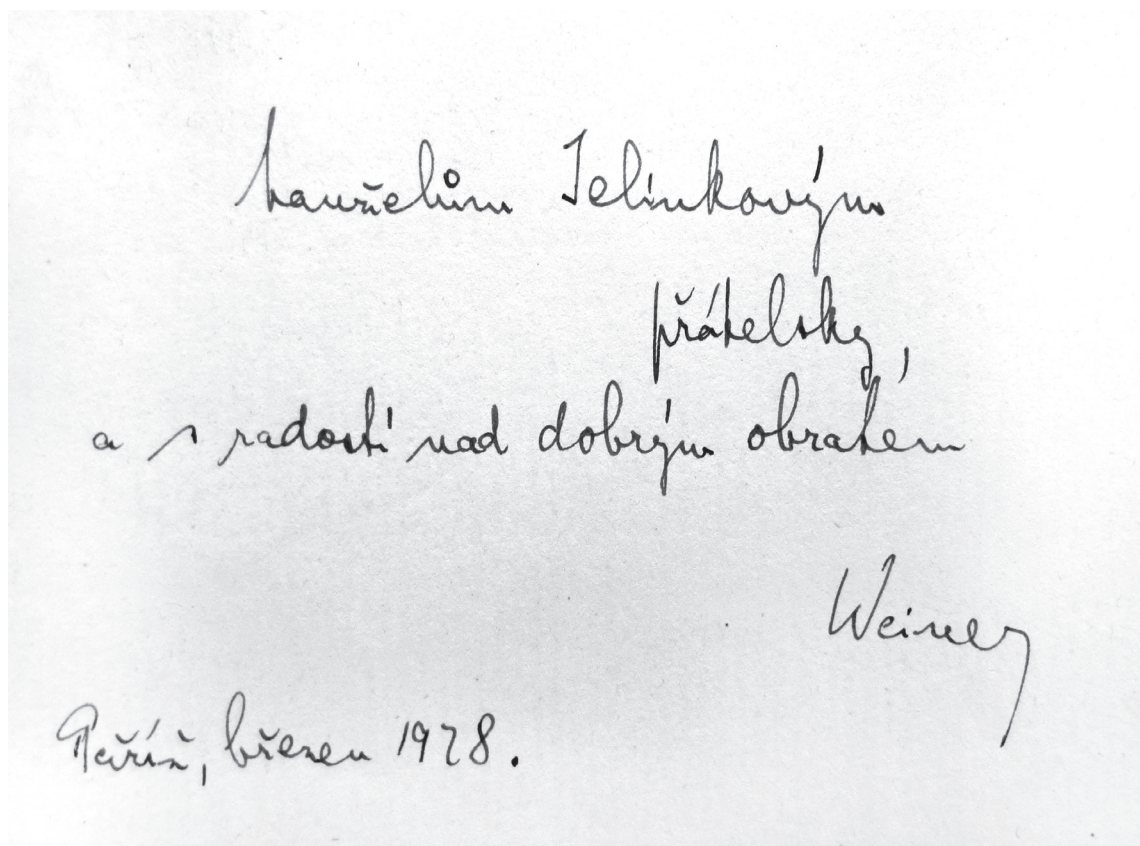 manželům Jelínkovým
přátelsky,
a s radostí nad dobrým obratem
Weiner
Paříž, březen 1928.